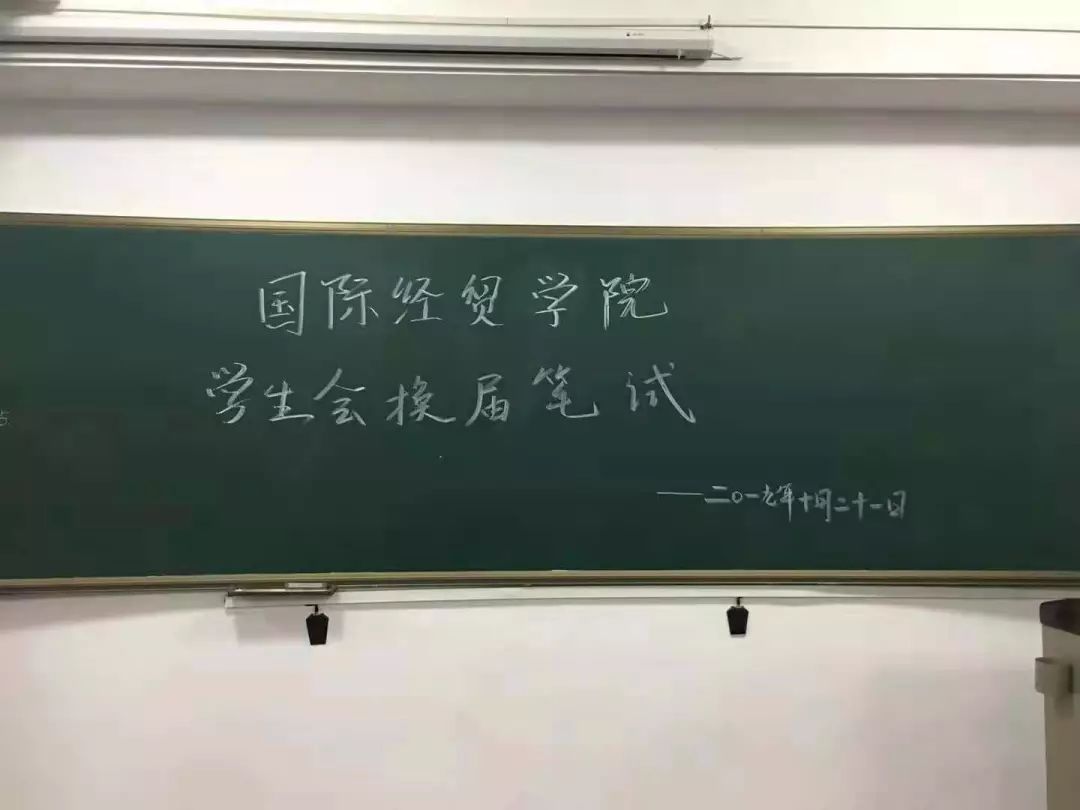 国际经贸学院
学生会换届笔试
——二〇一九年十月二十一日